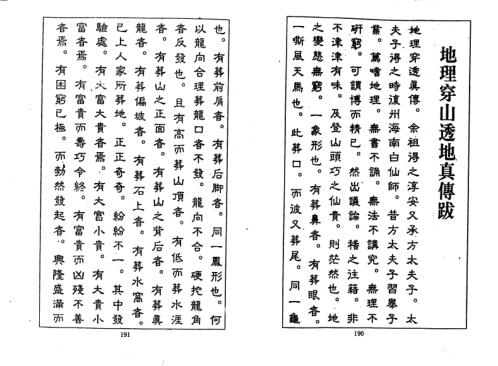 地理穿山透地真傳跋
地理穿透真傳。余祖得之淳安又承方太夫子。太
夫子得之時瀼州海南白仙師。昔方太夫子習舉子
業。篤嗜地理。無書不誦。無法不講究。無理不
研窮。可謂博而精已。然出議論。稽之往籍。非
不津津有味。及登山頭巧之仙責。則茫然也。地
之變態無窮。一象形也。有葬鼻者。有葬眼者。有
一嘶風天馬也。此葬口。而彼又葬尾。同一龜
190
也。有葬前肩者。有葬后脚者。同一鳳形也。何
以龍向合理葬龍口者不發。龍向不合。硬挖龍角
者反發也。且有高而葬山頂者。有低而葬水涯
者。有葬山之正面者。有葬山之背后者。有葬眞
龍者。有葬偏坡者。有葬石上者。有葬水窩者。
已上人家所葬地。正正奇奇。紛紛不一。其中發
驗處。有大富大貴者焉。有大富小貴。有大貴小
富者焉。有富貴而壽巧令終。有富貴而凶殘不善
者焉。有困窮已極。而勃然發起者。興隆盛滿而
191